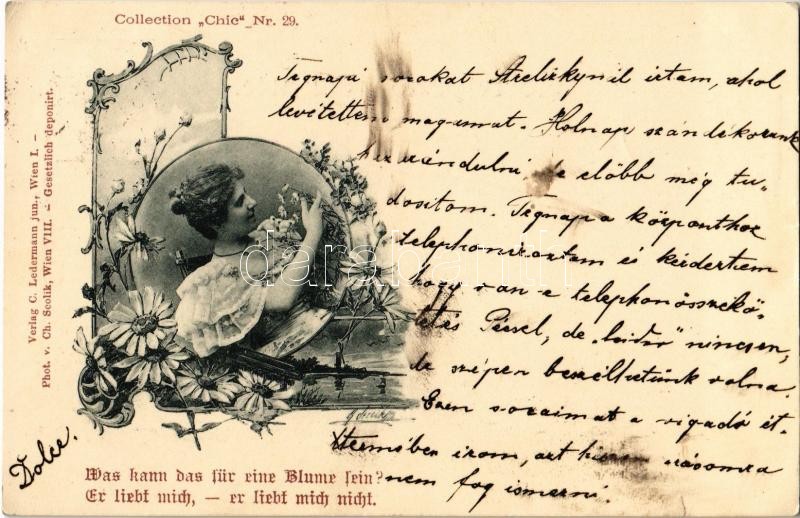 Collection „Chic“ Nr. 29.
Verlag C. Ledermann jun., Wien I. –
Phot. v. Ch. Scolik, Wien VIII. – Gesetzlich deponirt.
Tegnapi sorokat irtam, ahol
levétettem magamat. Holnap szándékozunk
kirándulni, de előbb még tu-
dositom. Tegnap a központhoz
telephoniroztam és kérdeztem
hogy van-e telephonösszekö-
tetés Pécsel, de „leider“ nincsen,
de szépen beszélhettünk volna.
Ezen soraimat a vigadó ét-
termében irom, azt hiszem irásomra
nem fog ismerni.
Dolce.
Was kann das für eine Blume sein?
Er liebt mich, – er liebt mich nicht.
darabanth